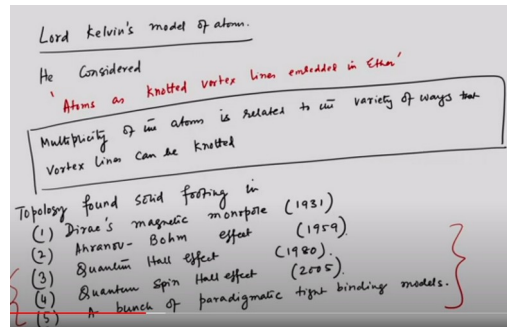 Lord Kelvin's model of atom.
He Considered
'Atoms as knotted vortex lines embedded in Ether'
Multiplicity of the atoms is related to the variety of ways that
vortex lines can be knotted
Topology found solid footing in
(1) Dirac's magnetic monopole (1931)
(2) Ahranov-Bohm effect (1959).
(3) Quantum Hall effect (1980).
(4) Quantum Spin Hall effect (2005).
(5) A bunch of paradigmatic tight binding models.